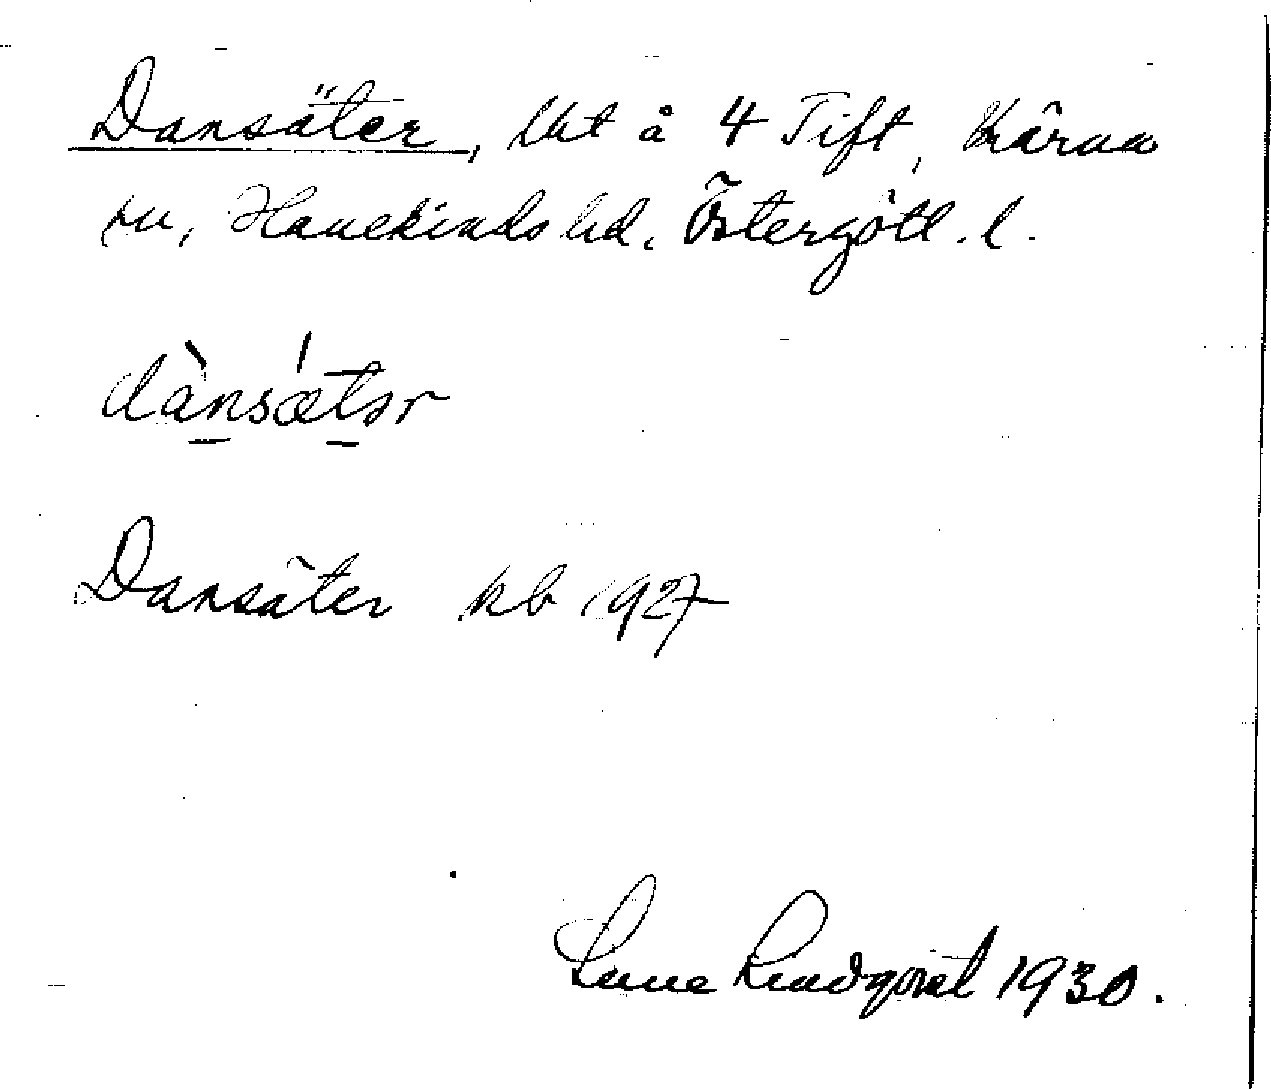 Dansäter, lht å 4 Tift, Kärna
sn, Hanekinds hd. Östergötl. l.
dànsǽtər
Dansäter kb 1927
Sune Lindqvist 1930.